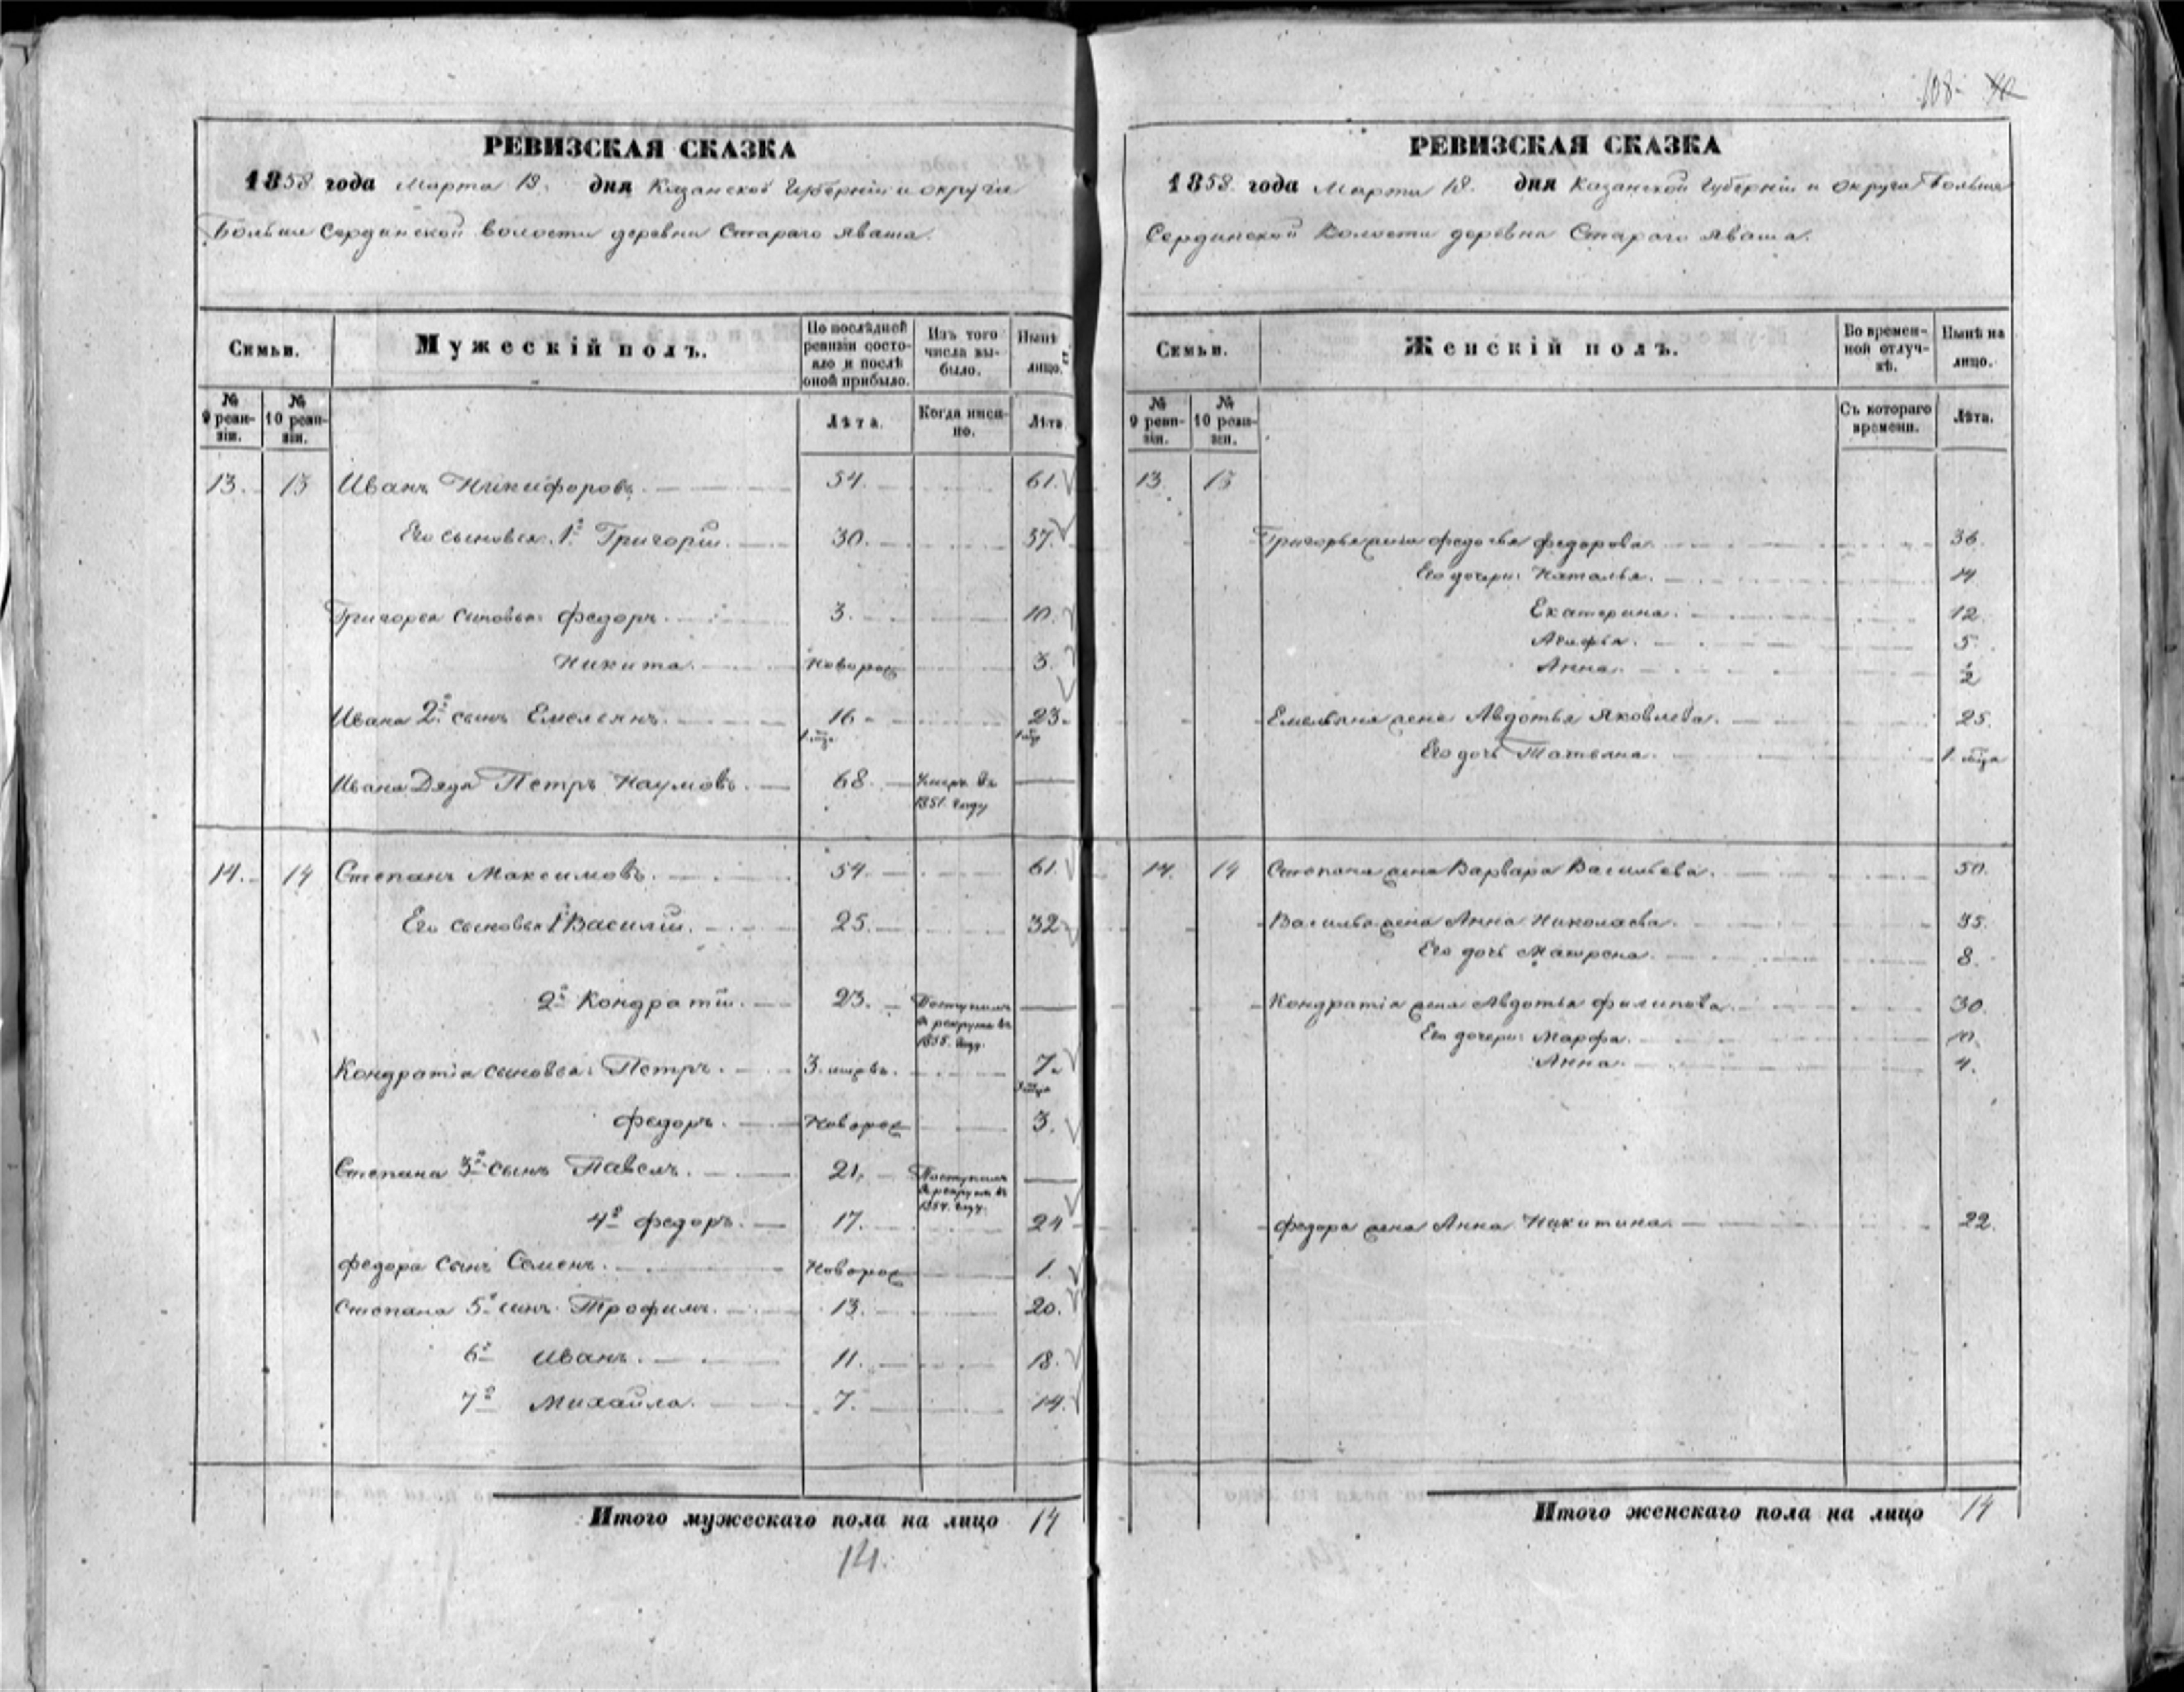 РЕВИЗСКАЯ СКАЗКА
1858 года Марта 18. дня Казанской Губерніи и округа
Больше Сердинской волости деревни Стараго Яваша.
Семьи.
Мужескій полъ.
По послѣдней ревизіи состояло и послѣ оной прибыло.
Изъ того числа выбыло.
Нынѣ на лицо.
№ 9 ревизіи.
№ 10 ревизіи.
Лѣта.
Когда именно.
Лѣта.
13. 13 Иванъ Никифоровъ. 54. 61.
Его сыновья. 1й Григорій. 30. 37.
Григорья сыновья: Федоръ. 3. 10.
Никита. Новорож 3.
Ивана 2й сынъ Емельянъ. 16 23.
Ивана Дядя Петръ Наумовъ. 68. Умеръ въ
1851. году
14. 14 Степанъ Максимовъ. 54. 61.
Его сыновья 1й Василій. 25. 32
2й Кондратій. 23. Поступилъ
в рекруты въ
1855. году.
Кондратія сыновья: Петръ. 3. мцовъ. 7.
3 мца
Федоръ. Новорож 3.
Степана 3й сынъ Павелъ. 21. Поступилъ
в рекруты въ
1854. году.
4й Федоръ. 17. 24
Федора Сынъ Семенъ. Новорож 1.
Степана 5й сынъ Трофимъ. 13. 20.
6й Иванъ. 11. 18.
7й Михайла. 7. 14.
Итого мужескаго пола на лицо 14
14.
108. 40
РЕВИЗСКАЯ СКАЗКА
1858. года Марта 18. дня Казанской Губерніи и округа Больше
Сердинской Волости деревни Стараго Яваша.
Семьи.
Женскій полъ.
Во временной отлучкѣ.
Нынѣ на лицо.
№ 9 ревизіи.
№ 10 ревизіи.
Съ котораго времени.
Лѣта.
13. 13
Григорья жена Федосья Федорова. 36.
Его дочери: Наталья. 14
Екатерина. 12.
Агафья. 5.
Анна. ½
Емельяна жена Авдотья Яковлева. 25.
Его дочь Татьяна. 1. мца
14. 14 Степана жена Варвара Васильева. 50.
Василья жена Анна Николаева. 35.
Его дочь Матрена. 8.
Кондратія жена Авдотья Филипова. 30.
Его дочери: Марфа. 10.
Анна. 4.
Федора жена Анна Никитина. 22.
Итого женскаго пола на лицо 14